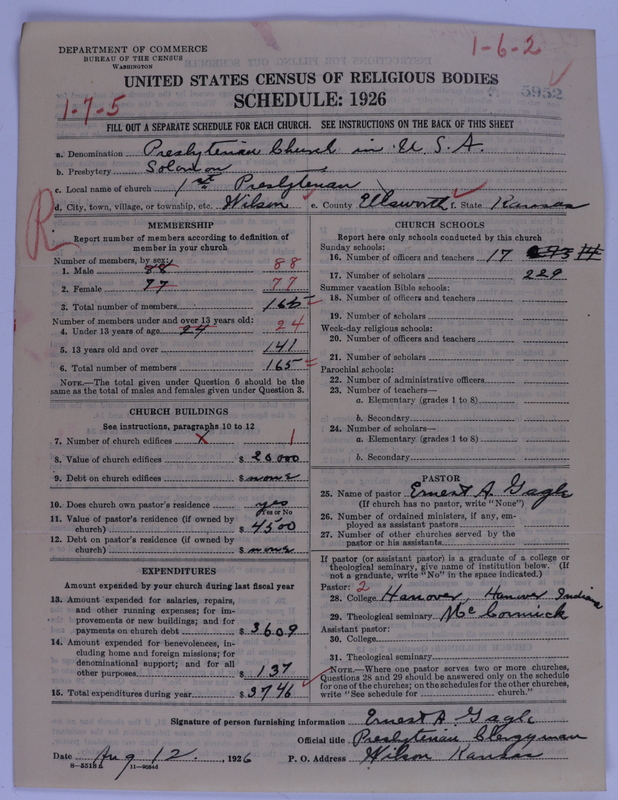 DEPARTMENT OF COMMERCE
BUREAU OF THE CENSUS
WASHINGTON
1-6-2
UNITED STATES CENSUS OF RELIGIOUS BODIES
5952
SCHEDULE: 1926
1-7-5
FILL OUT A SEPARATE SCHEDULE FOR EACH CHURCH. SEE INSTRUCTIONS ON THE BACK OF THIS SHEET
a. Denomination Presbyterian Church in U.S.A.
b. Presbytery Solomon
c. Local name of church 1st Presbyterian
d. City, town, village, or township, etc. Wilson e. County Ellsworth f. State Kansas
R
MEMBERSHIP
Report number of members according to definition of
member in your church
Number of members, by sex:
1. Male 88 88
2. Female 77 77
3. Total number of members 165
Number of members under and over 13 years old:
4. Under 13 years of age 24 24
5. 13 years old and over 141
6. Total number of members 165
NOTE.—The total given under Question 6 should be
the same as the total of males and females given under Question 3.
CHURCH BUILDINGS
See instructions, paragraphs 10 to 12
7. Number of church edifices x 1
8. Value of church edifices $ 20000
9. Debt on church edifices $ none
10. Does church own pastor's residence yes
Yes or No
11. Value of pastor's residence (if owned by
church) $ 4500
12. Debt on pastor's residence (if owned by
church) $ none
EXPENDITURES
Amount expended by your church during last fiscal year
13. Amount expended for salaries, repairs,
and other running expenses; for im-
provements or new buildings; and for
payments on church debt $ 3609
14. Amount expended for benevolences, in-
cluding home and foreign missions; for
denominational support; and for all
other purposes $ 137
15. Total expenditures during year $ 3746
CHURCH SCHOOLS
Report here only schools conducted by this church
Sunday schools:
16. Number of officers and teachers 17
17. Number of scholars 229
Summer vacation Bible schools:
18. Number of officers and teachers
19. Number of scholars
Week-day religious schools:
20. Number of officers and teachers
21. Number of scholars
Parochial schools:
22. Number of administrative officers
23. Number of teachers—
a. Elementary (grades 1 to 8)
b. Secondary
24. Number of scholars—
a. Elementary (grades 1 to 8)
b. Secondary
PASTOR
25. Name of pastor Ernest A. Gagle
(If church has no pastor, write "None")
26. Number of ordained ministers, if any, em-
ployed as assistant pastors
27. Number of other churches served by the
pastor or his assistants
If pastor (or assistant pastor) is a graduate of a college or
theological seminary, give name of institution below. (If
not a graduate, write "No" in the space indicated.)
Pastor: 2
28. College Hanover, Hanover Indiana
29. Theological seminary McCormick
Assistant pastor:
30. College
31. Theological seminary
NOTE.—Where one pastor serves two or more churches,
Questions 28 and 29 should be answered only on the schedule
for one of the churches; on the schedules for the other churches,
write "See schedule for church."
Signature of person furnishing information Ernest A. Gagle
Official title Presbyterian Clergyman
Date Aug 12, 1926 P. O. Address Wilson Kansas